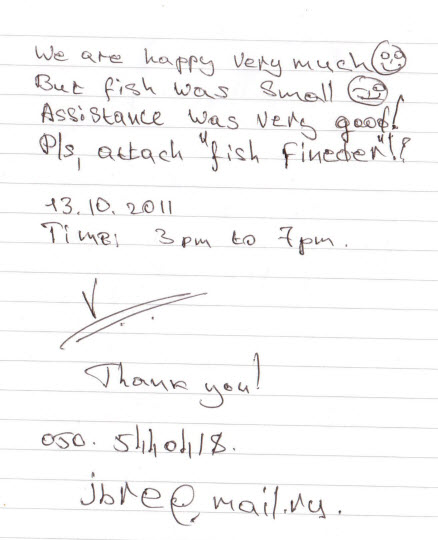 We are happy very much
But fish was small
Assistance was very good!
P/s, attach "fish fineder"!!
13.10.2011
Time: 3pm to 7pm.
Thank you!
050.
jbre@mail.ru.